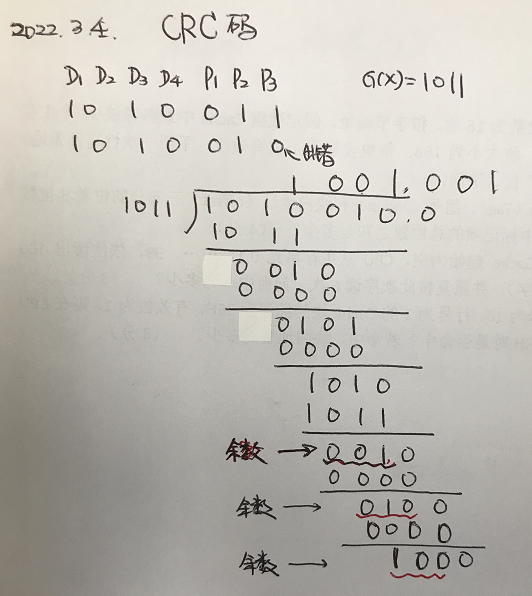 2022.3.4. CRC码
D1 D2 D3 D4 P1 P2 P3 G(X)=1011
1 0 1 0 0 1 1
1 0 1 0 0 1 0 ←出错
1 001.001
1011 1010010.0
10 11
0 0 1 0
0 0 0 0
0 1 0 1
0 0 0 0
1 0 1 0
1 0 1 1
余数 → 0 0 1 0
0 0 0 0
余数 → 0 1 0 0
0 0 0 0
余数 → 1 0 0 0